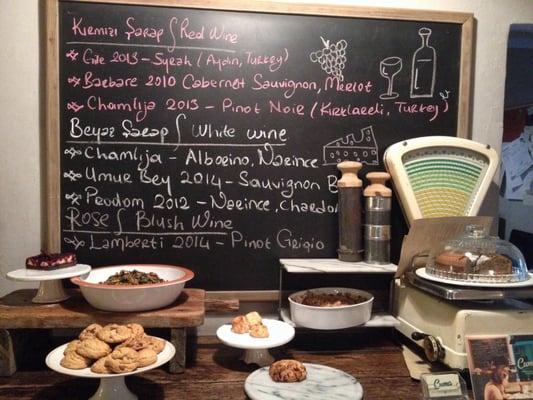 Kırmızı Şarap / Red Wine
Cote 2013 - Syrah (Aydın, Turkey)
Barbare 2010 Cabernet Sauvignon, Merlot
Chamlija 2013 - Pinot Noir (Kırklareli, Turkey)
Beyaz Şarap / White wine
Chamlija - Alboeino, Narince
Umur Bey 2014 - Sauvignon B
Prodom 2012 - Narince, Chardon
Rose / Blush Wine
Lamberti 2014 - Pinot Grigio
Cuma